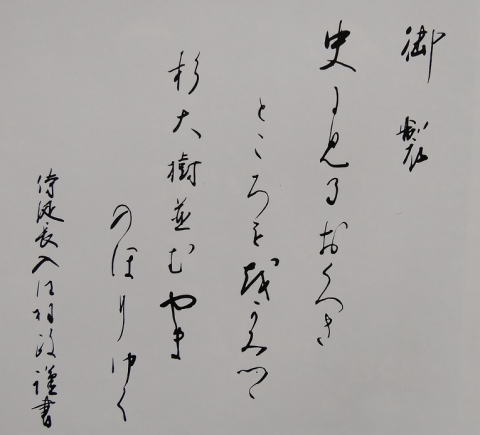 御製
史に見るおくつき
ところを越かみつゝ
杉大樹並むやま
のほりゆく
侍従長入江相政謹書